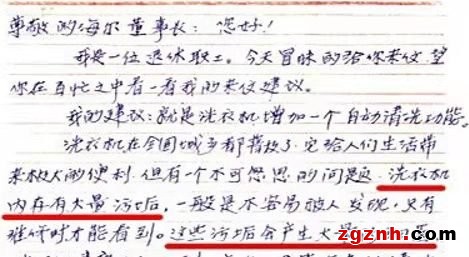 尊敬的海尔董事长：您好！
我是一位退休职工。今天冒昧的给你来信，望
你在百忙之中看一看我的来信建议。
我的建议：就是洗衣机增加一个自动清洗功能。
洗衣机在全国城乡都普及了，它给人们生活带
来极大的便利，但有一个不可忽思的问题，洗衣机
内存有大量污垢后，一般是不容易被人发现，只有
维修时才能看到。这些污垢会产生大量
zgznh.com